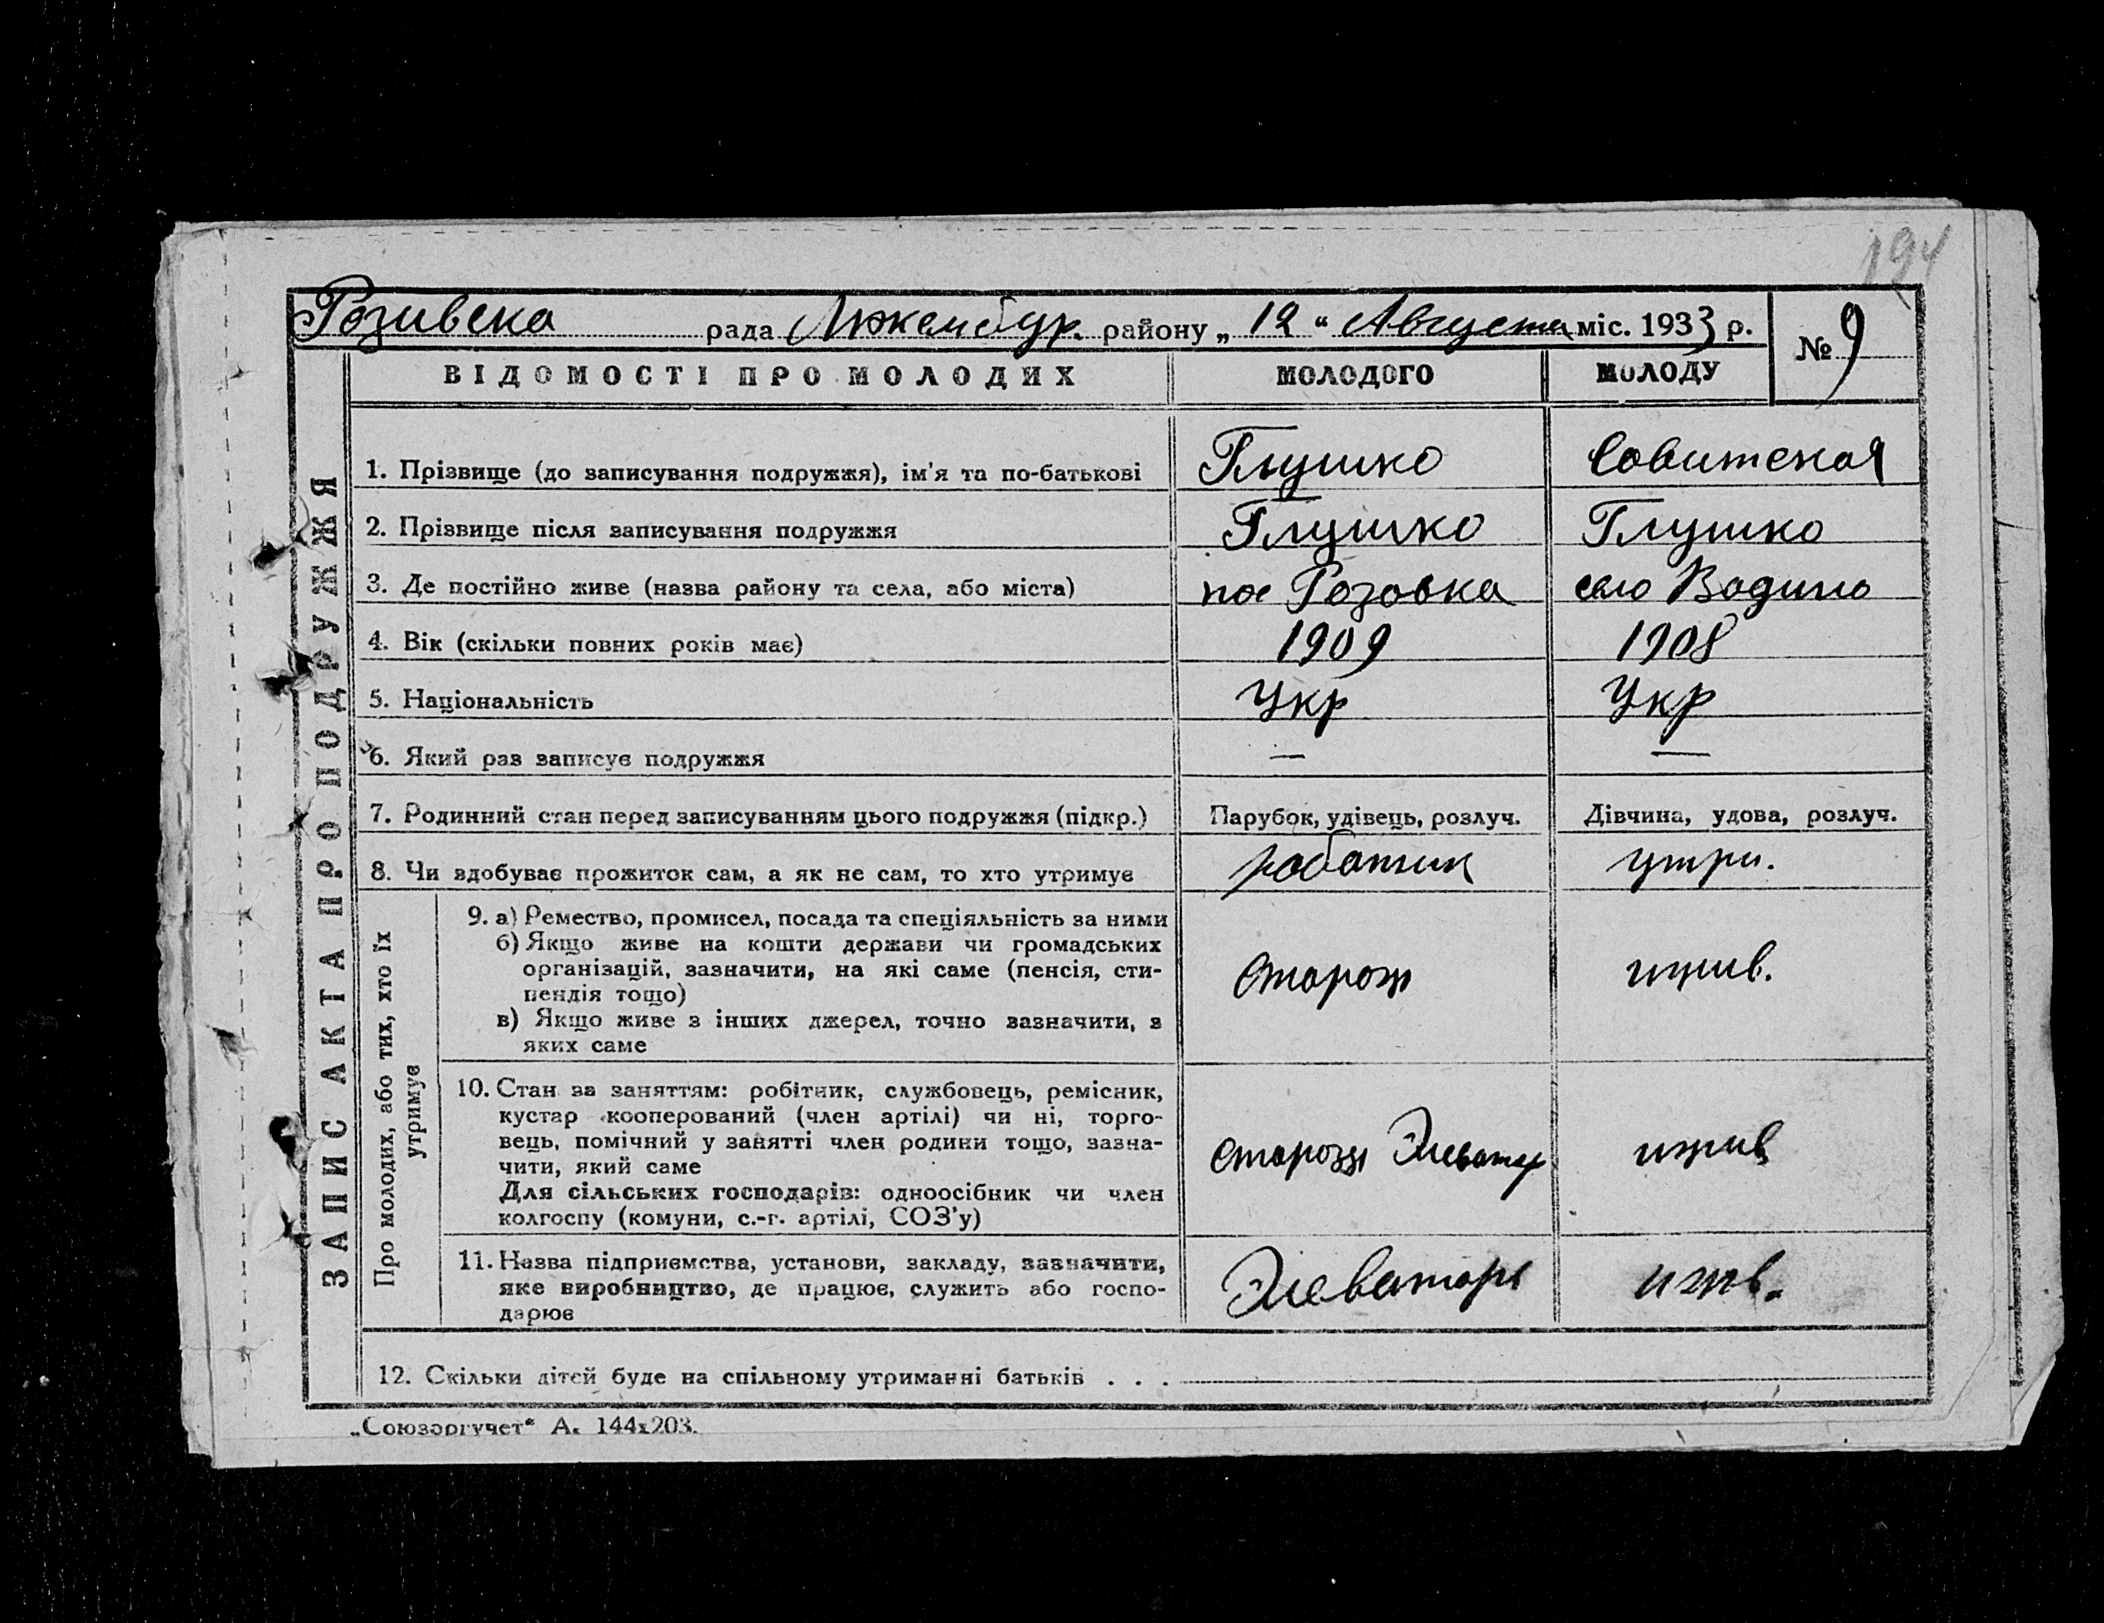 194
Розивска рада Люксембур. району „ 12 “ Августа міс. 1933 р. № 9
ВІДОМОСТІ ПРО МОЛОДИХ МОЛОДОГО МОЛОДУ
ЗАПИС АКТА ПРО ПОДРУЖЖЯ
1. Прізвище (до записування подружжя), ім'я та по-батькові Глушко Совитская
2. Прізвище після записування подружжя Глушко Глушко
3. Де постійно живе (назва району та села, або міста) пос Розовка село Водино
4. Вік (скільки повних років має) 1909 1908
5. Національність Укр Укр
6. Який раз записує подружжя — —
7. Родинний стан перед записуванням цього подружжя (підкр.) Парубок, удівець, розлуч. Дівчина, удова, розлуч.
8. Чи здобуває прожиток сам, а як не сам, то хто утримує утри.
Про молодих, або тих, хто їх
утримує
9. а) Ремество, промисел, посада та спеціяльність за ними
б) Якщо живе на кошти держави чи громадських
організацій, зазначити, на які саме (пенсія, сти-
пендія тощо)
в) Якщо живе з інших джерел, точно зазначити, з
яких саме
Сторож ижив.
10. Стан за заняттям: робітник, службовець, ремісник,
кустар кооперований (член артілі) чи ні, торго-
вець, помічний у занятті член родини тощо, зазна-
чити, який саме
Для сільських господарів: одноосібник чи член
колгоспу (комуни, с.-г. артілі, СОЗ'у)
сторож Элеватор ижив
11. Назва підприємства, установи, закладу, зазначити,
яке виробництво, де працює, служить або госпо-
дарює
Элеваторъ ижв.
12. Скільки дітей буде на спільному утриманні батьків . . .
„Союзоргучет“ А. 144х203.